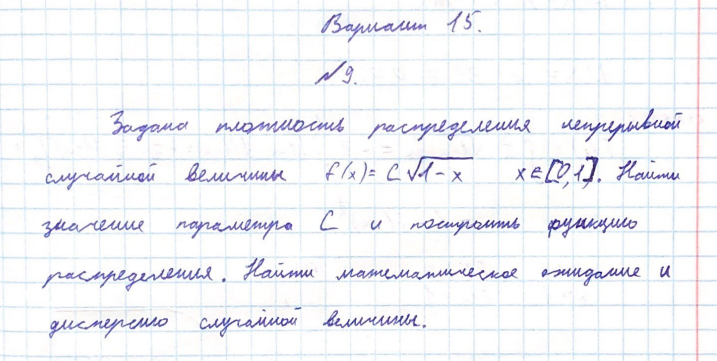 Вариант 15.
№9.
Задана плотность распределения непрерывной
случайной величины f(x)= C√1-x x∈[0,1]. Найти
значение параметра C и построить функцию
распределения. Найти математическое ожидание и
дисперсию случайной величины.